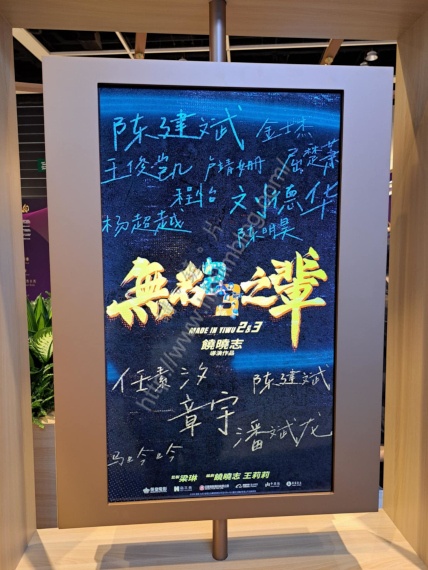 陈建斌 金杰
王俊凯 卢靖姗 屈楚萧
程怡 刘德华
杨超越 陈明昊
無名之輩
MADE IN YIWU 2&3
饒曉志
導演作品
任素汐 陈建斌
章宇
潘斌龙
马吟吟
監製 梁琳 編劇 饒曉志 王莉莉